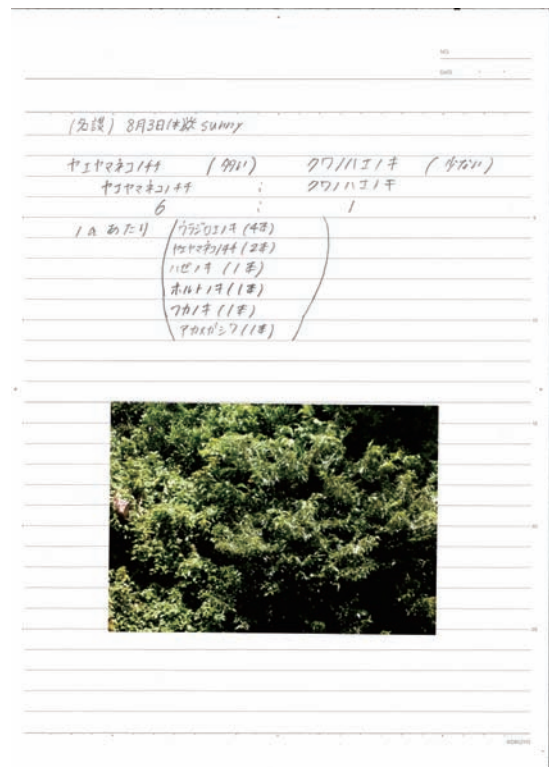 NO.
DATE
(名護) 8月3日(木) sunny
ヤエヤマネコノチチ (多い) クワノハエノキ (少ない)
ヤエヤマネコノチチ : クワノハエノキ
6 : 1
1a あたり ウラジロエノキ (4本)
ヤエヤマネコノチチ (2本)
ハゼノキ (1本)
ホルトノキ (1本)
フカノキ (1本)
アカメガシワ (1本)
KOKUYO